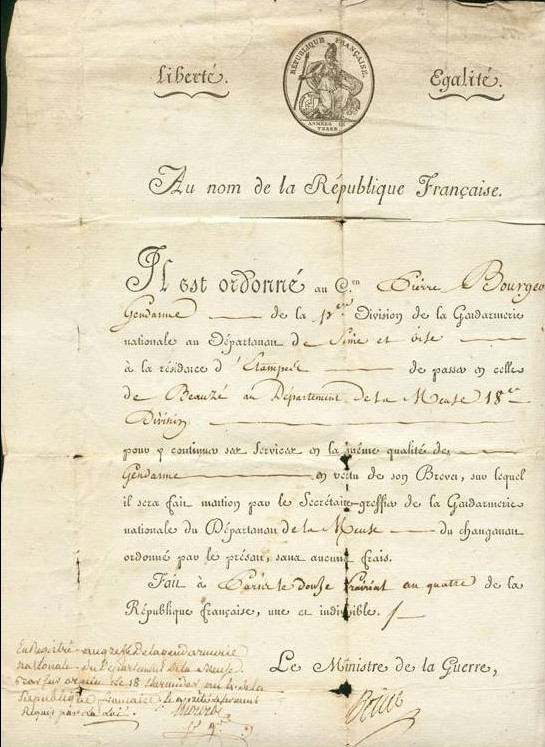 Liberté.
RÉPUBLIQUE FRANÇAISE.
ARMÉES DE
TERRE
Egalité.
Au nom de la République Française.
Il est ordonné au C.en Pierre Bourgeo
Gendarme de la 1ere Division de la Gendarmerie
nationale au Département de Seine et oise
à la résidence d'Etampes de passer en celle
de Beauzé au Département de la Meuse 18eme
Division
pour y continuer ses services en la même qualité de
Gendarme en vertu de son Brevet, sur lequel
il sera fait mention par le Secrétaire-greffier de la Gendarmerie
nationale du Département de la Meuse du changement
ordonné par le présent, sans aucuns frais.
Fait à Paris le douze prairial an quatre de la
République française, une et indivisible.
Enregistré au greffe de la gendarmerie
nationale du Département de la Meuse
le 18 thermidor an de la
République française
Requis par la Loi.
Le Ministre de la Guerre,